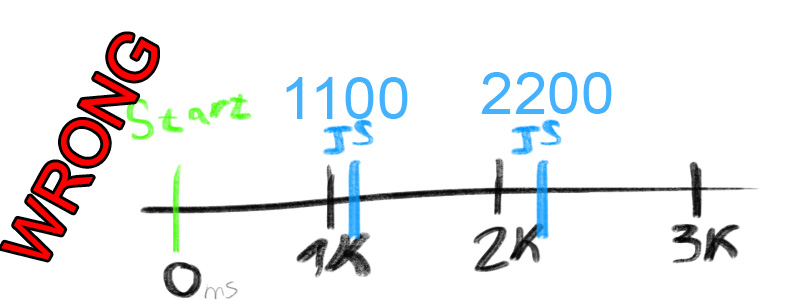 WRONG
Start
1100
2200
JS
JS
0ms
1K
2K
3K